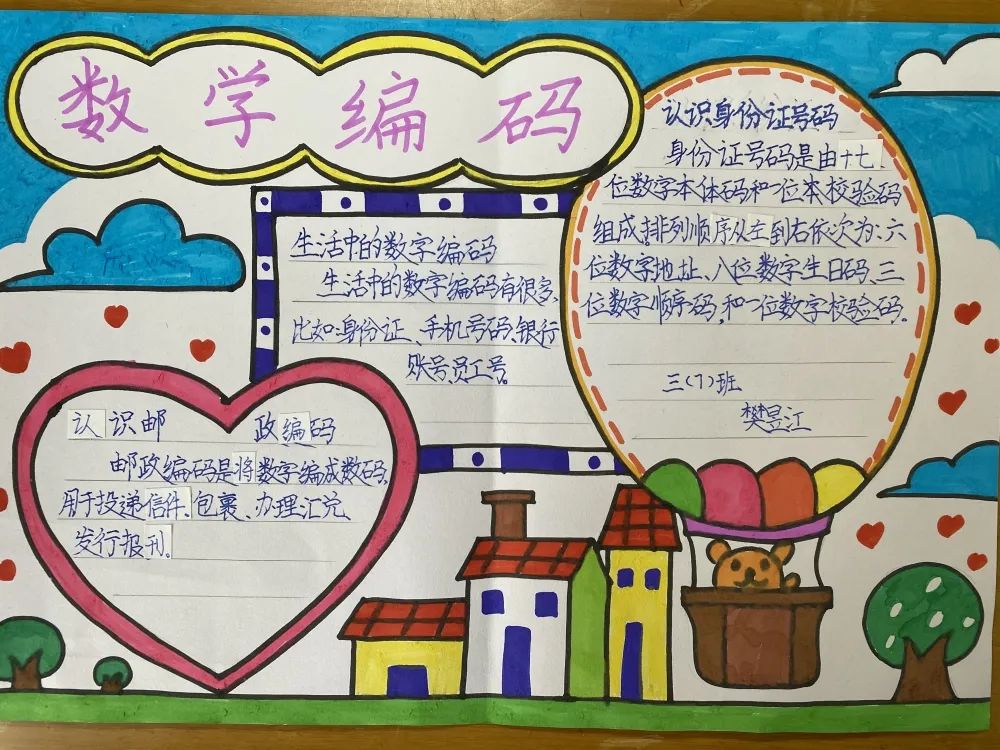 数学编码
生活中的数字编码
生活中的数字编码有很多,
比如身份证、手机号码、银行
账号、员工号。
认识身份证号码
身份证号码,是由十七
位数字本体码和一位本校验码
组成,排列顺序从左到右依次为:六
位数字地址、八位数字生日码、三
位数字顺序码,和一位数字校验码。
三(7)班
樊昱江
认识邮政编码
邮政编码是将数字编成数码,
用于投递信件、包裹、办理汇兑、
发行报刊。